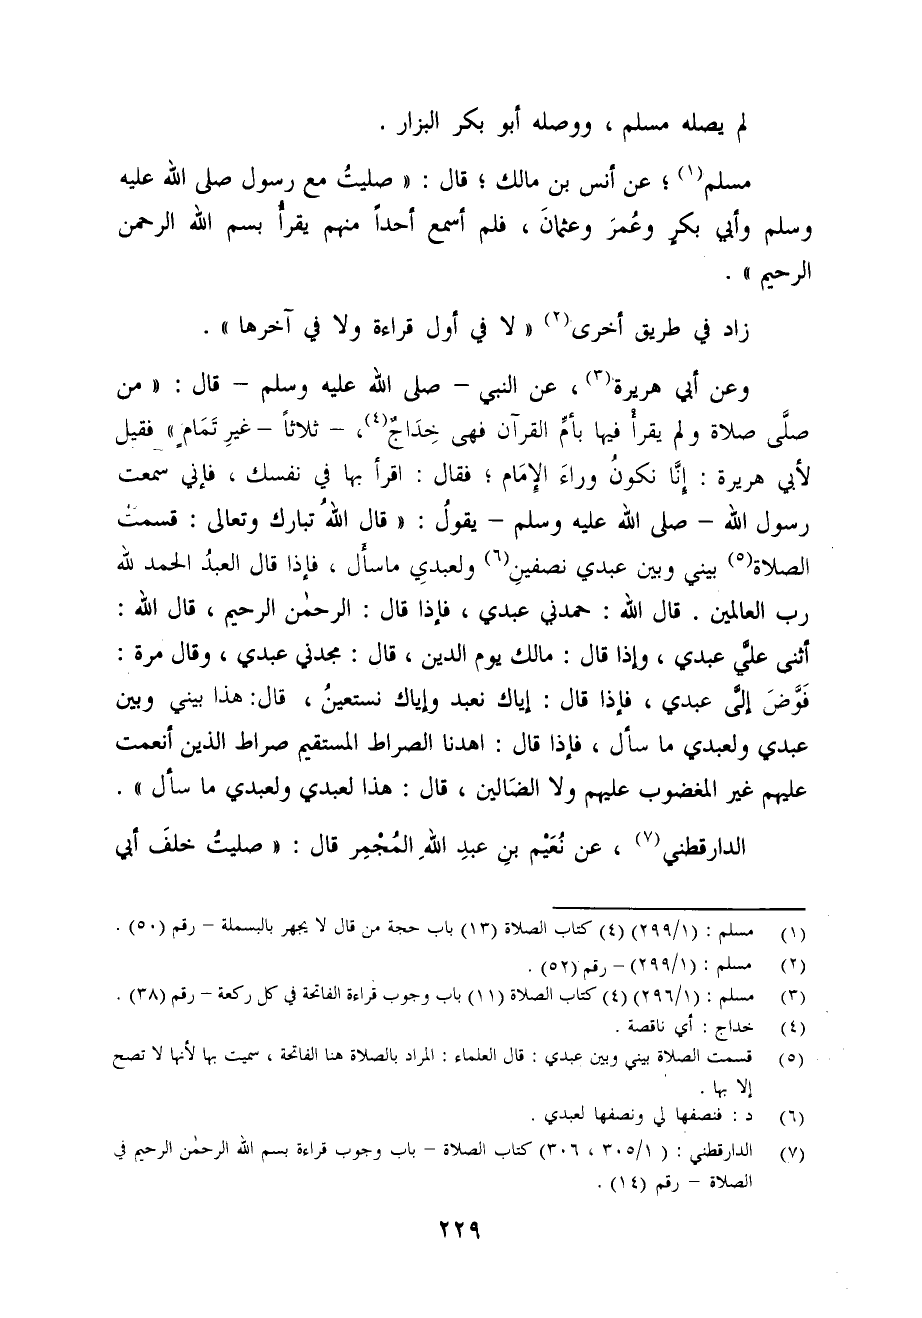 لم يصله مسلم ، ووصله أبو بكر البزار .
مسلم(١) ؛ عن أنس بن مالك ؛ قال : « صليتُ مع رسول صلى الله عليه
وسلم وأبي بكرٍ وعُمرَ وعثمانَ ، فلم أسمع أحداً منهم يقرأُ بسم الله الرحمن
الرحيم » .
زاد في طريق أخرى(٢) « لا في أول قراءة ولا في آخرها » .
وعن أبي هريرة(٣) ، عن النبي – صلى الله عليه وسلم – قال : « من
صلَّى صلاة ولم يقرأْ فيها بأمِّ القرآن فهى خِدَاجٌ(٤)، – ثلاثاً – غيرِ تَمَامٍ » فقيل
لأبي هريرة : إِنَّا نكونُ وراءَ الإِمَام ؛ فقال : اقرأ بها في نفسك ، فإني سمعت
رسول الله – صلى الله عليه وسلم – يقولُ : « قال اللهُ تبارك وتعالى : قسمتُ
الصلاة(٥) بيني وبين عبدي نصفينِ(٦) ولعبدي ماسأَل ، فإذا قال العبدُ الحمد لله
رب العالمين . قال الله : حمدني عبدي ، فإذا قال : الرحمٰن الرحيم ، قال الله :
أثنى عليَّ عبدي ، وإذا قال : مالك يوم الدين ، قال : مجدني عبدي ، وقال مرة :
فَوَّضَ إلىَّ عبدي ، فإذا قال : إياك نعبد وإياك نستعينُ ، قال: هذا بيني وبين
عبدي ولعبدي ما سأل ، فإذا قال : اهدنا الصراط المستقيم صراط الذين أنعمت
عليهم غير المغضوب عليهم ولا الضَالين ، قال : هذا لعبدي ولعبدي ما سأل » .
الدارقطني(٧) ، عن نُعَيْم بنِ عبدِ اللهِ المُجْمِر قال : « صليتُ خلفَ أبي
(١) مسلم : (٢٩٩/١) (٤) كتاب الصلاة (١٣) باب حجة من قال لا يجهر بالبسملة – رقم (٥٠) .
(٢) مسلم : (٢٩٩/١) – رقم (٥٢) .
(٣) مسلم : (٢٩٦/١) (٤) كتاب الصلاة (١١) باب وجوب قراءة الفاتحة في كل ركعة – رقم (٣٨) .
(٤) خداج : أي ناقصة .
(٥) قسمت الصلاة بيني وبين عبدي : قال العلماء : المراد بالصلاة هنا الفاتحة ، سميت بها لأنها لا تصح
إلا بها .
(٦) د : فنصفها لي ونصفها لعبدي .
(٧) الدارقطني : ( ٣٠٥/١ ، ٣٠٦) كتاب الصلاة – باب وجوب قراءة بسم الله الرحمٰن الرحيم في
الصلاة – رقم (١٤) .
٢٢٩